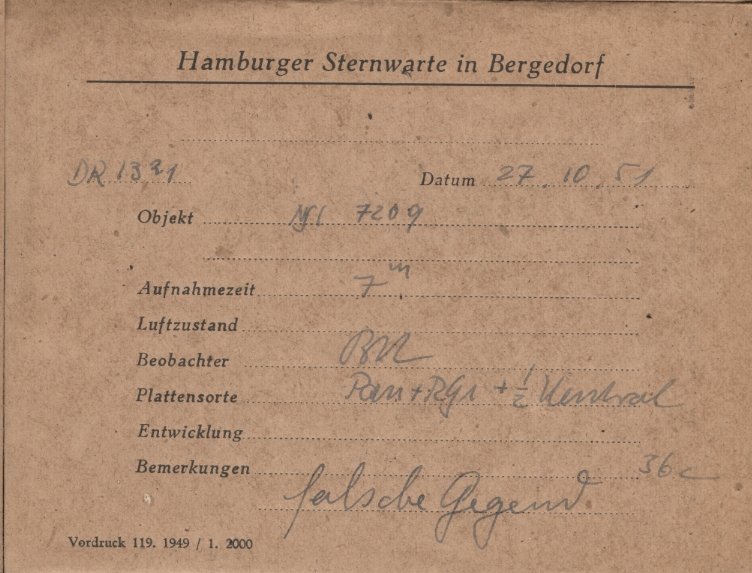 Hamburger Sternwarte in Bergedorf
DR 1331 Datum 27.10.51
Objekt NGC 7209
Aufnahmezeit 7m
Luftzustand
Beobachter
Plattensorte Pan + RG1 + 1/2 Neutral
Entwicklung
Bemerkungen 36c
falsche Gegend
Vordruck 119. 1949 / 1. 2000